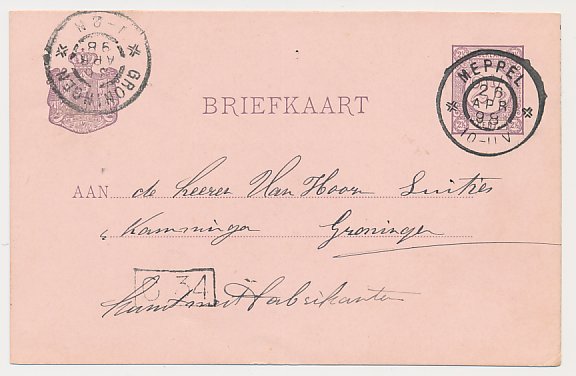 GRONINGEN
1-2N
APR
98
MEPPEL
26
APR
98
10-11V
BRIEFKAART
AAN de heeren Van Hoorn Luitjes
& Kamminga Groningen
34
Kunstmest Fabrikanten